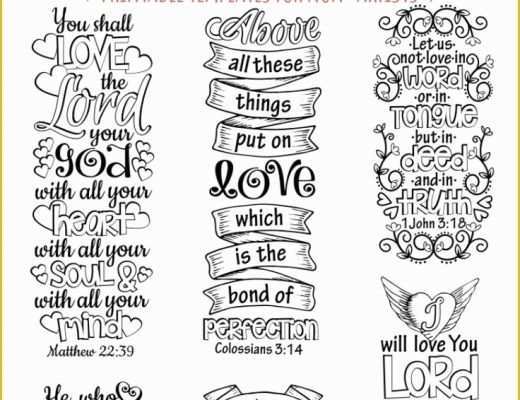 PRINTABLE TEMPLATES FOR NON-ARTISTS
You shall
LOVE
the
Lord
your
God
with all your
heart
with all your
SOUL &
with all your
mind
Matthew 22:39
He who
Above
all these
things
put on
love
which
is the
bond of
PERFECTION
Colossians 3:14
Let us
not love in
WORD
or in
TONGUE
but in
deed
and in
TRUTH
1 John 3:18
I
will love You
LORD